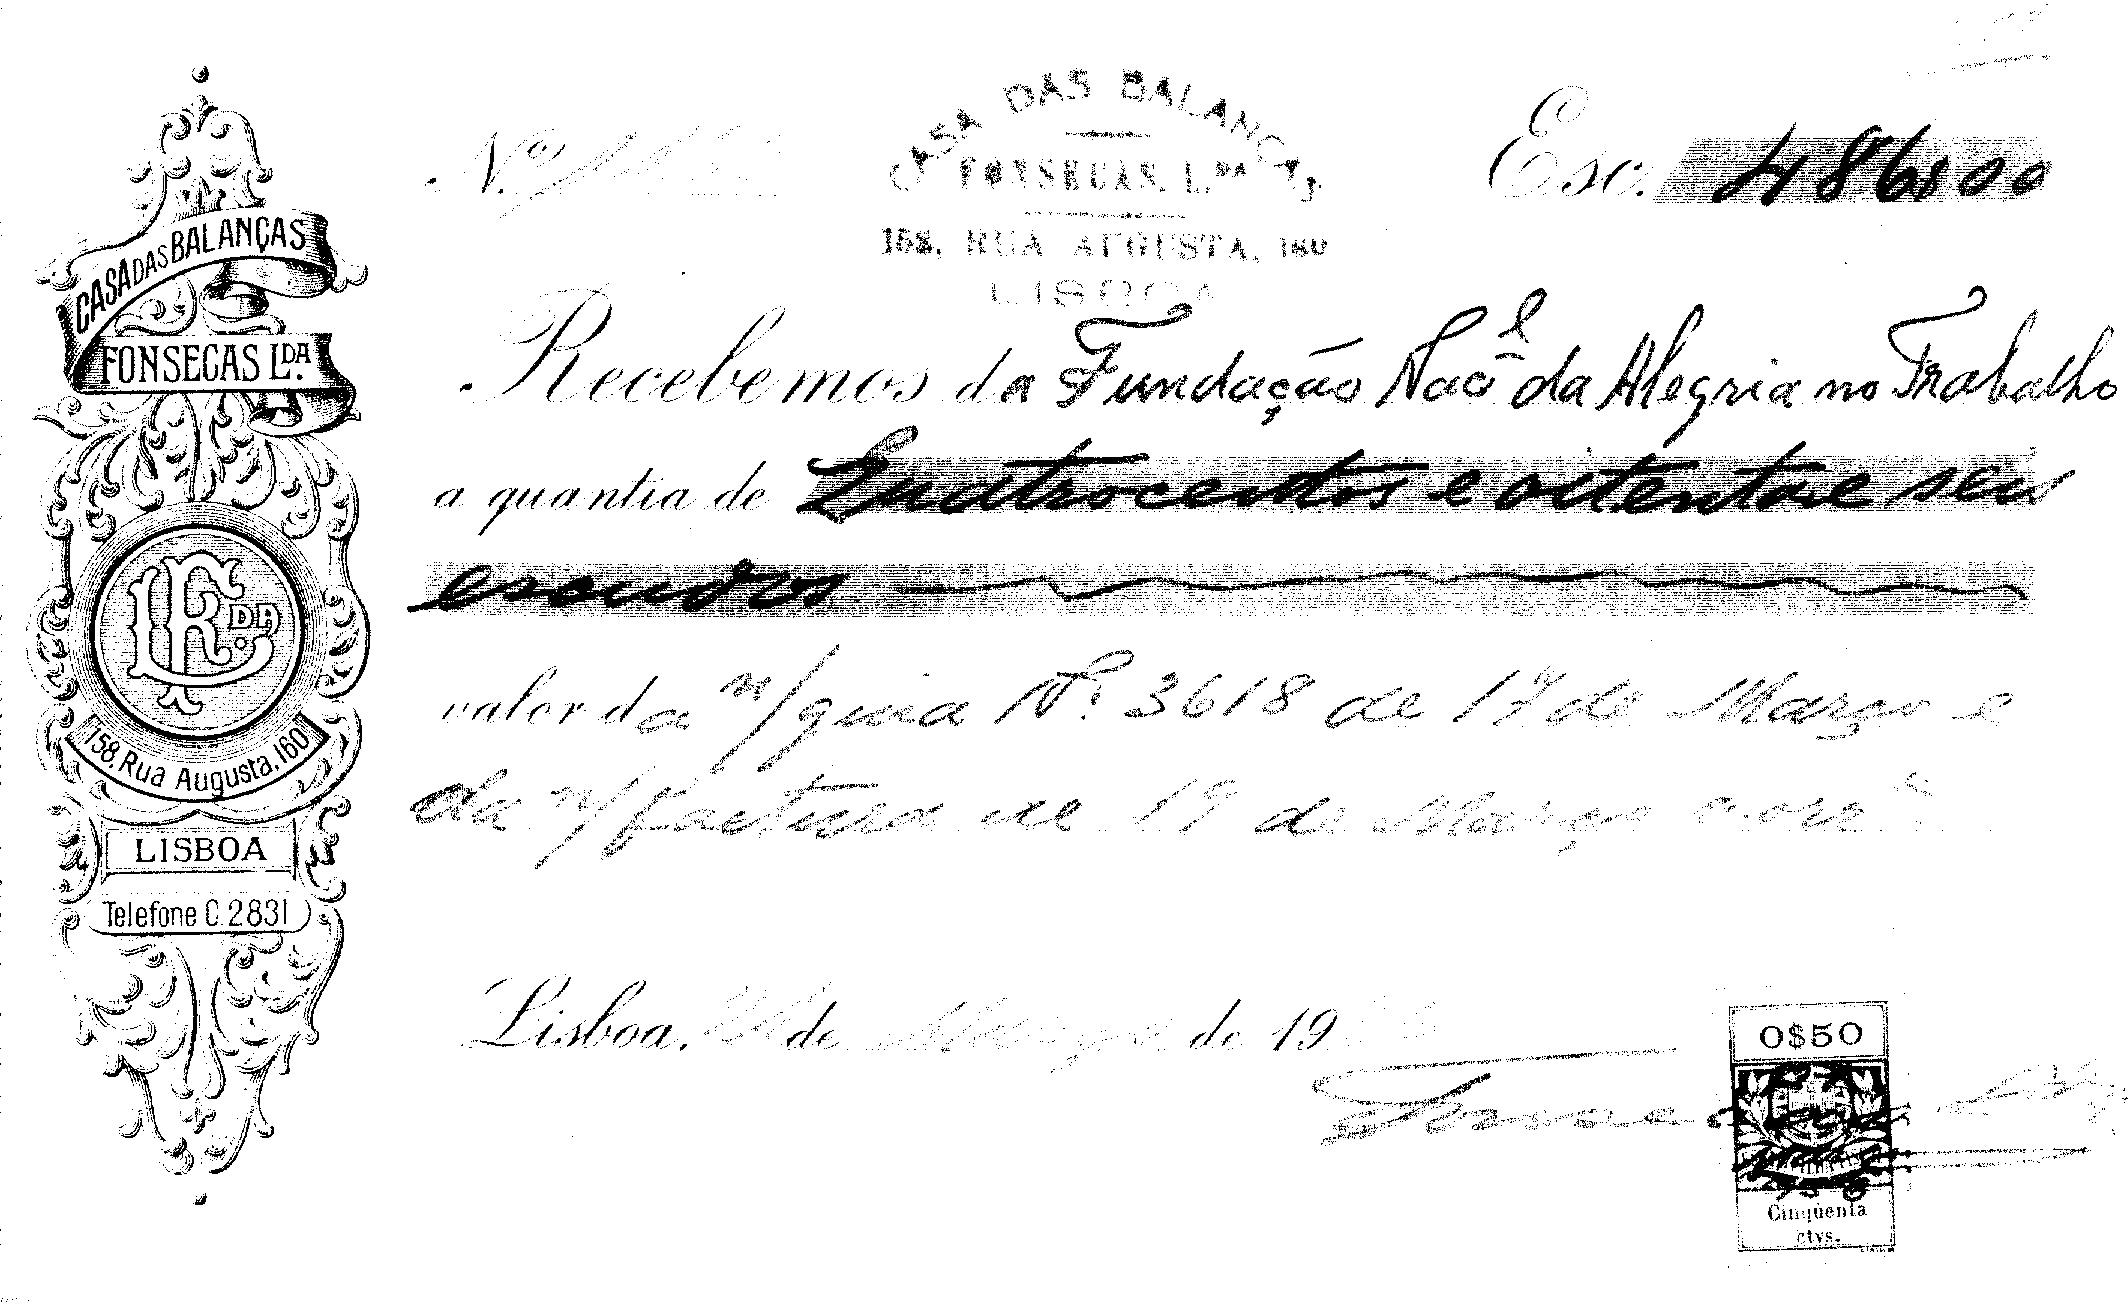 CASA DAS BALANÇAS
FONSECAS L.DA
158, Rua Augusta, 160
LISBOA
Telefone C. 2831
CASA DAS BALANÇAS
FONSECAS, L.DA
158, RUA AUGUSTA, 160
LISBOA
N.º
Esc. 486$00
Recebemos da Fundação Nac.ᵒˡ da Alegria no Trabalho
a quantia de Quatrocentos e oitenta e seis
escudos
valor da n/guia Nº. 3618 de 17 de Março e
da n/factura de 19 de Março corr.te
Lisboa, de Março de 19
0$50
Cinqüenta
ctvs.